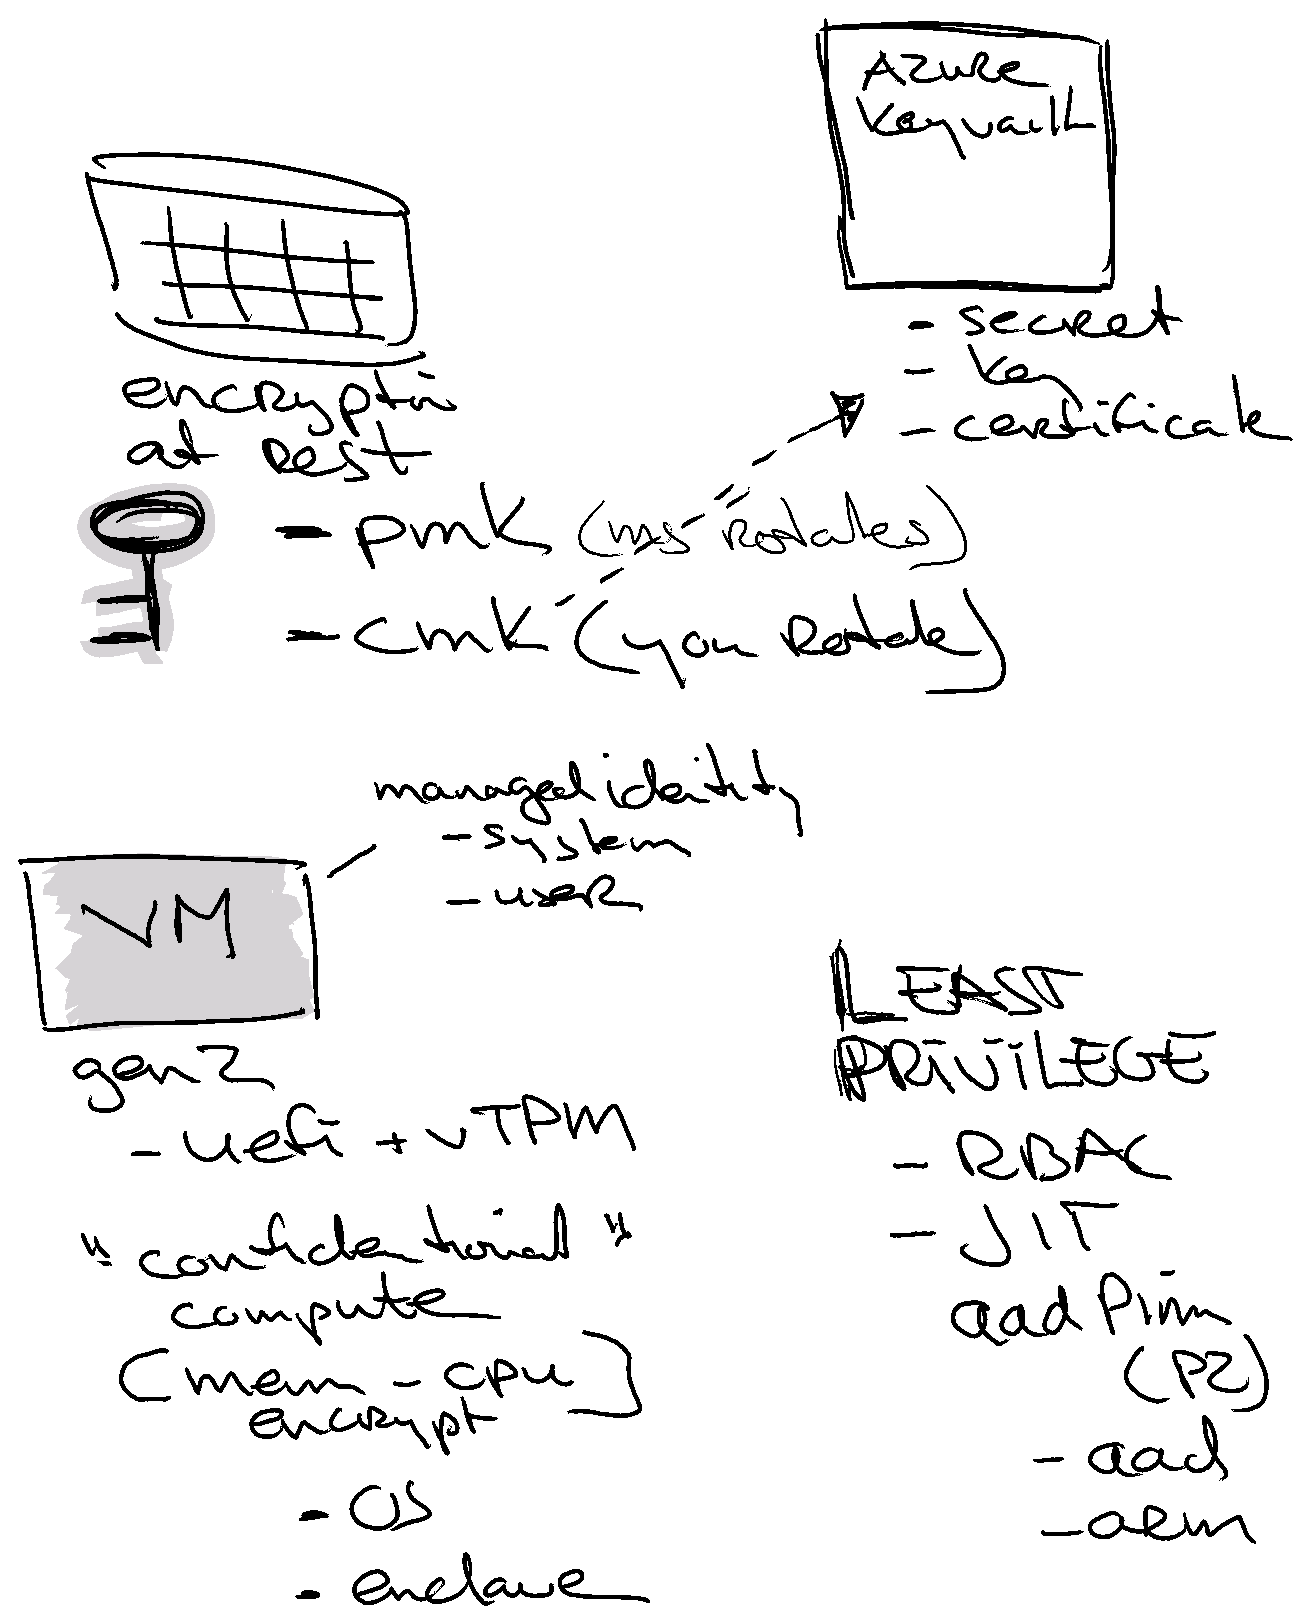 Azure
Keyvault
- secret
- key
- certificate
encryption
at rest
- PMK (MS Rotates)
- CMK (you Rotate)
managed identity
- system
- user
VM
gen2
- uefi + vTPM
"confidential"
compute
[mem - cpu]
encrypt
- OS
- enclave
LEAST
PRIVILEGE
- RBAC
- JIT
aad Pim
(P2)
- aad
- arm